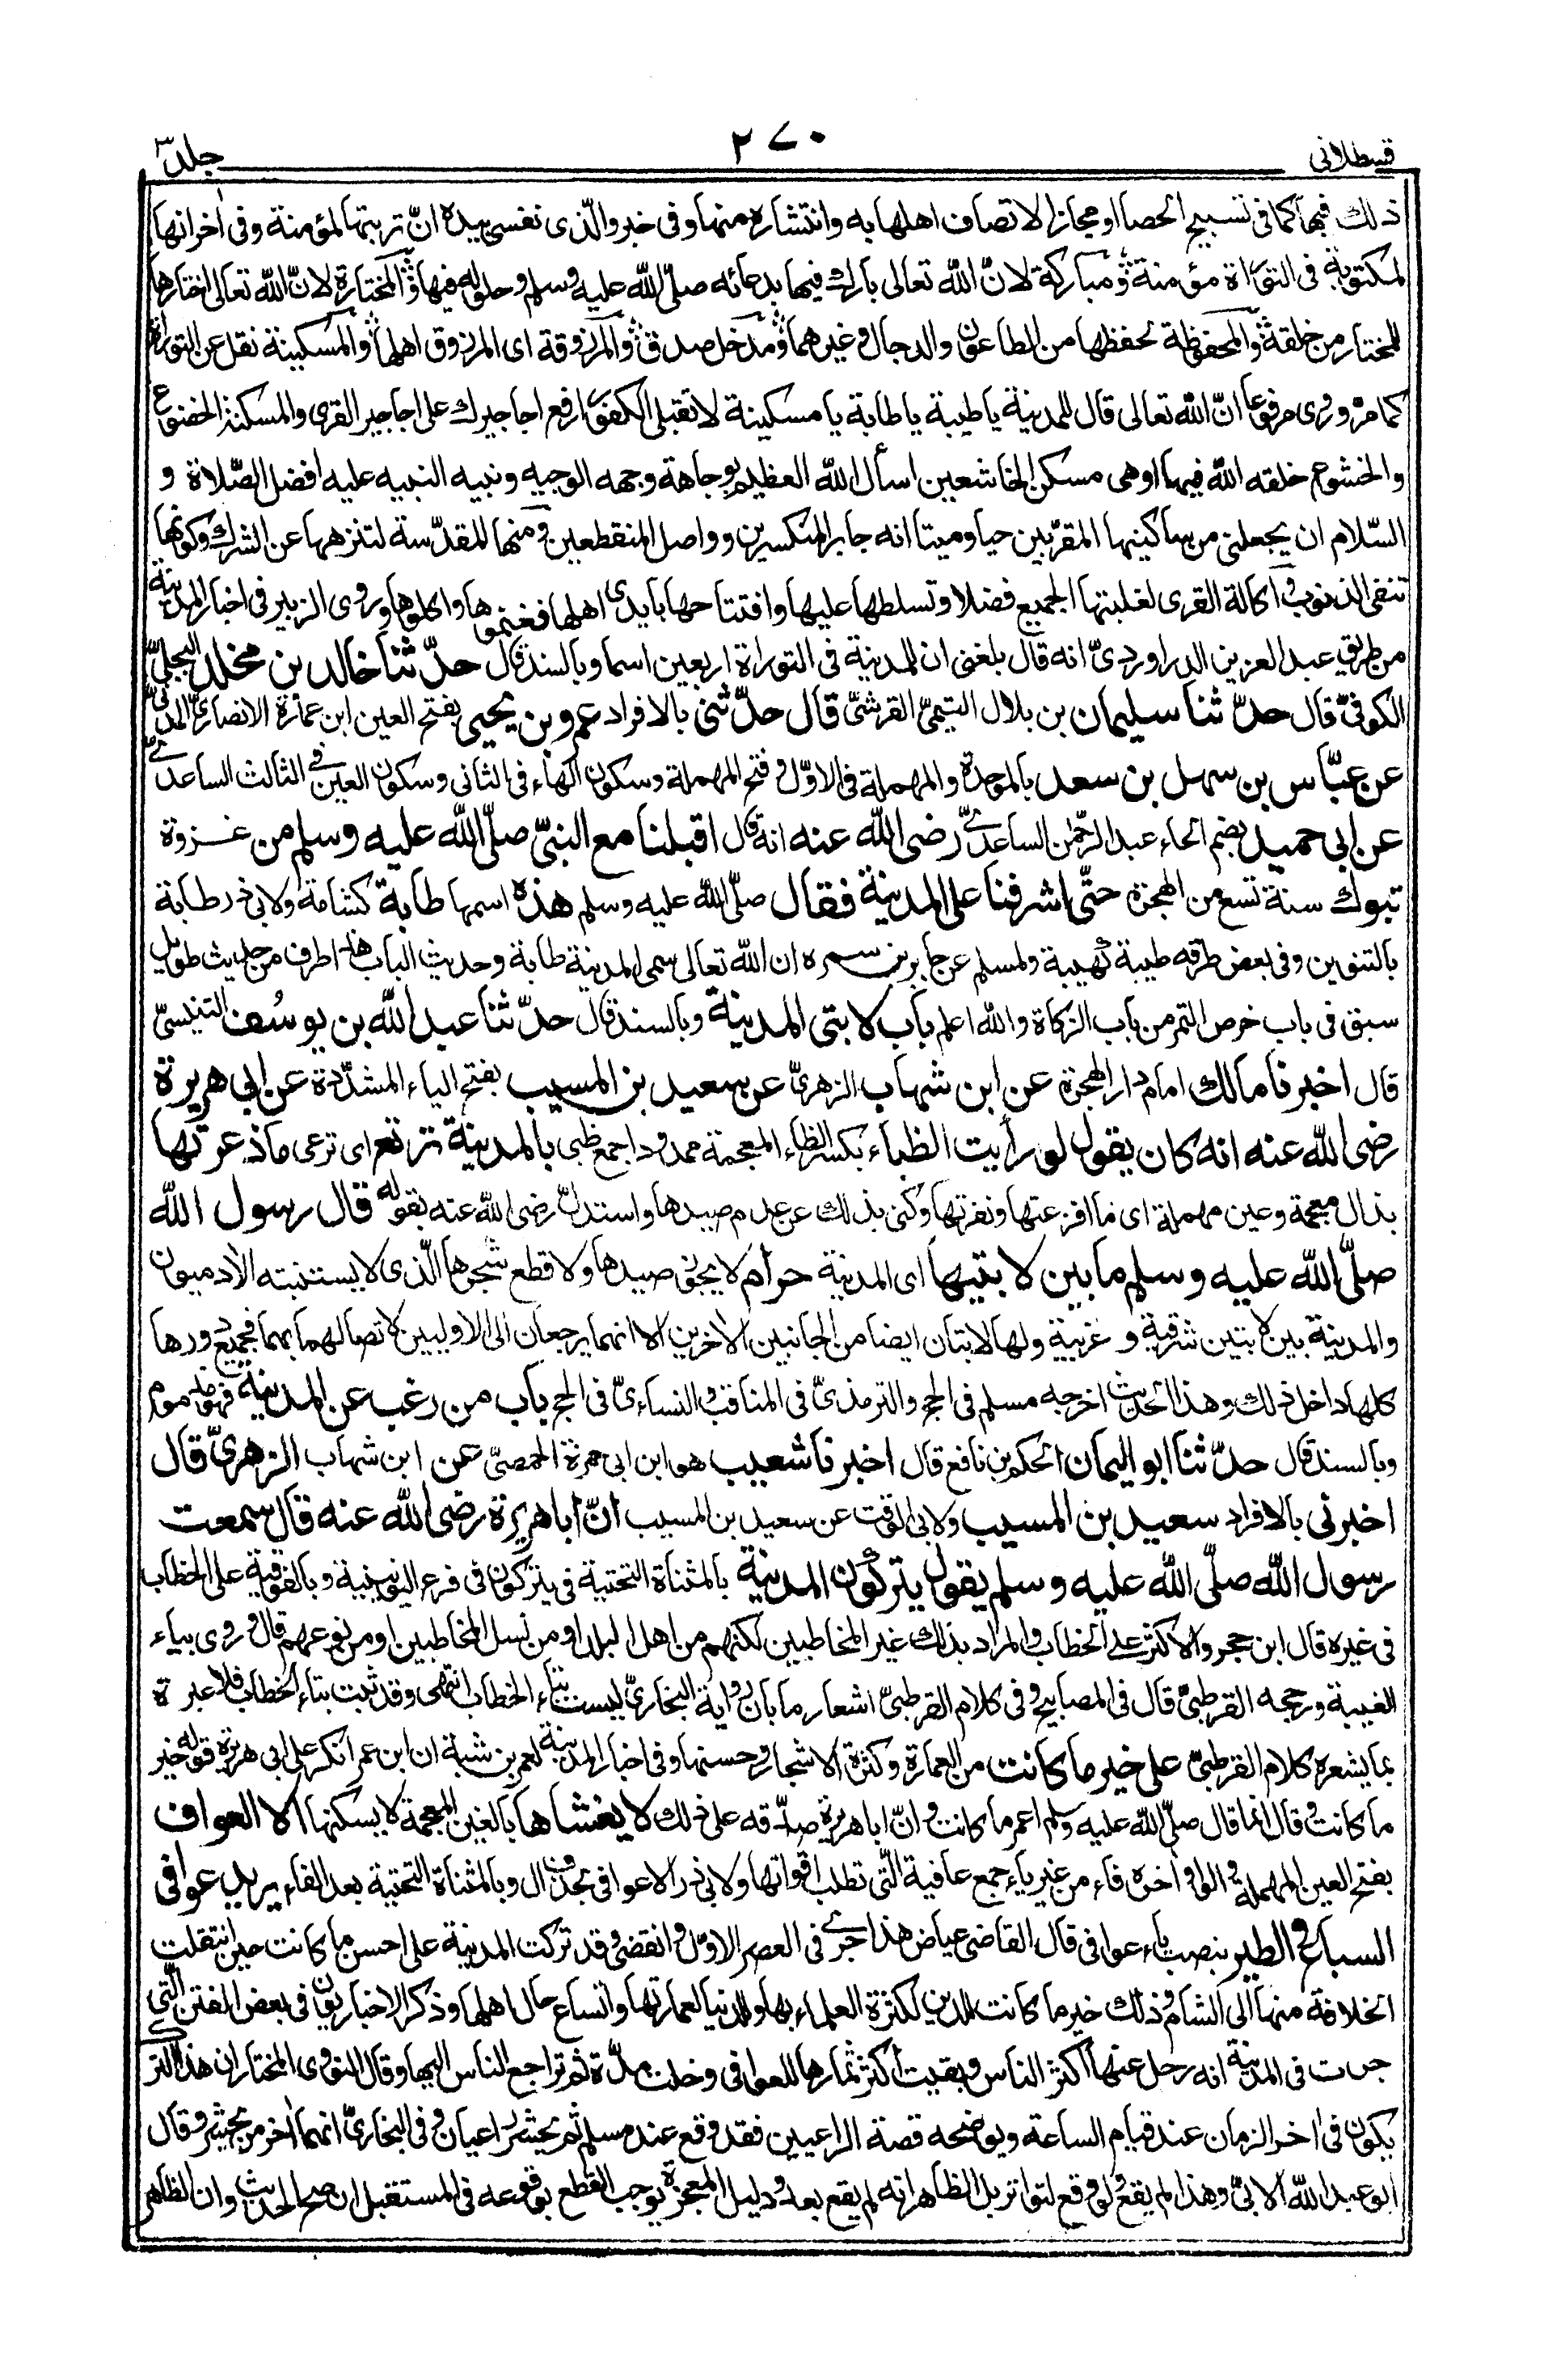 قسطلانى
٢٧٠
جلد ٣
ذلك فيها كما فى تسبيح الحصا او مجازا لاتصاف اهلها به وانتشاره منها وفى خبر والّذى نفسى بيده انّ تربتها لمؤمنة وفى اخر انها
لمكتوبة فى التوراة مؤمنة ومباركة لانّ الله تعالى بارك فيها بدعائه صلّى الله عليه وسلم وحلوله فيها والمختارة لانّ الله تعالى اختارها
للمختار من خلقه والمحفوظة لحفظها من الطاعون والدجال وغيرهما ومدخل صدق والمرزوقة اى المرزوق اهلها والمسكينة نقل عن التوراة
كما مرّ وروى مرفوعا انّ الله تعالى قال للمدينة يا طيبة يا طابة يا مسكينة لا تقبلى الكنوز ارفع اجاجيرك على اجاجير القرى والمسكنة الخضوع
والخشوع خلقه الله فيها اوهى مسكن الخاشعين اسأل الله العظيم بوجاهة وجهه الوجيه ونبيه النبيه عليه افضل الصّلاة و
السّلام ان يجعلنى من ساكنيها المقرّبين حيا وميتا انه جابر المنكسرين وواصل المنقطعين ومنها المقدّسة لتنزهها عن الشرك وكونها
تنفى الذنوب واكالة القرى لغلبتها الجميع فضلا وتسلطها عليها وافتتاحها بايدى اهلها فغنموها واكلوها وروى الزبير فى اخبار المدينة
من طريق عبد العزيز الدراوردىّ انه قال بلغنى ان للمدينة فى التوراة اربعين اسما وبالسند قال حدّثنا خالد بن مخلد البجلىّ
الكوفىّ قال حدّثنا سليمان بن بلال التيمىّ القرشىّ قال حدّثنى بالافراد عمرو بن يحيى بفتح العين ابن عمارة الانصارىّ المدنىّ
عن عبّاس بن سهل بن سعد بالموحدة والمهملة فى الاوّل وفتح المهملة وسكون الهاء فى الثانى وسكون العين فى الثالث الساعدىّ
عن ابى حميد بضم الحاء عبد الرحمن الساعدىّ رضى الله عنه انه قال اقبلنا مع النبىّ صلّى الله عليه وسلم من غزوة
تبوك سنة تسع من الهجرة حتّى اشرفنا على المدينة فقال صلّى الله عليه وسلم هذه اسمها طابة كشامة ولابى ذر طابة
بالتنوين وفى بعض طرقه طيبة كهيبة ولمسلم عن جابر بن سمرة ان الله تعالى سمى المدينة طابة وحديث الباب هذا طرف من حديث طويل
سبق فى باب خرص التمر من باب الزكاة والله اعلم باب لابتى المدينة وبالسند قال حدّثنا عبد الله بن يوسُف التنيسىّ
قال اخبرنا مالك امام دار الهجرة عن ابن شهاب الزهرىّ عن سعيد بن المسيب بفتح الياء المشدّدة عن ابى هريرة
رضى الله عنه انه كان يقول لو رأيت الظباء بكسر الظاء المعجمة ممدودا جمع ظبى بالمدينة ترتع اى ترعى ما ذعرتها
بذال معجمة وعين مهملة اى ما افزعتها ونفرتها وكنى بذلك عن عدم صيدها واستدلّ رضى الله عنه بقوله قال رسول الله
صلّى الله عليه وسلم ما بين لابتيها اى المدينة حرام لا يجوز صيدها ولا قطع شجرها الّذى لا يستنبته الآدميون
والمدينة بين لابتين شرقية و غربية ولها لابتان ايضا من الجانبين الآخرين الا انهما يرجعان الى الاوليين لاتصالهما بهما فجميع دورها
كلها داخل ذلك وهذا الحديث اخرجه مسلم فى الحج والترمذىّ فى المناقب والنساءىّ فى الحج باب من رغب عن المدينة فهو مذموم
وبالسند قال حدّثنا ابو اليمان الحكم بن نافع قال اخبرنا شعيب هو ابن ابى حمزة الحمصىّ عن ابن شهاب الزهرىّ قال
اخبرنى بالافراد سعيد بن المسيب ولابى الوقت عن سعيد بن المسيب انّ ابا هريرة رضى الله عنه قال سمعت
رسول الله صلّى الله عليه وسلم يقول يتركون المدينة بالمثناة التحتية فى يتركون فى فرع اليونينية وبالفوقية على الخطاب
فى غيره قال ابن حجر والاكثر على الخطاب والمراد بذلك غير المخاطبين لكنهم من اهل البلد او من نسل المخاطبين او من نوعهم قال وروى بياء
الغيبة ورجحه القرطبىّ قال فى المصابيح وفى كلام القرطبىّ اشعار ما بان رواية البخارىّ ليست بتاء الخطاب انتهى وقد ثبت بتاء الخطاب فلا عبرة
بما يشعره كلام القرطبىّ على خير ما كانت من العمارة وكثرة الاشجار وحسنها وفى اخبار المدينة لعمر بن شبة ان ابن عمر انكر على ابى هريرة قوله خير
ما كانت وقال انما قال صلّى الله عليه وسلم اعمر ما كانت وانّ ابا هريرة صدّقه على ذلك لا يغشاها بالغين المعجمة لا يسكنها الا العواف
بفتح العين المهملة والواو آخره فاء من غير ياء جمع عافية الّتى تطلب اقواتها ولابى ذر الا عوافى بحذف ال وبالمثناة التحتية بعد الفاء يريد عوافى
السباع والطير بنصب ياء عوافى قال القاضى عياض هذا جرى فى العصر الاوّل وانقضى وقد تركت المدينة على احسن ما كانت حين انتقلت
الخلافة منها الى الشام وذلك خير ما كانت للدين لكثرة العلماء بها وللدنيا لعمارتها واتساع حال اهلها وذكر الاخباريون فى بعض الفتن الّتى
جرت فى المدينة انه رحل عنها اكثر الناس وبقيت اكثر ثمارها للعوافى وخلت مدّة ثم تراجع الناس اليها وقال النووى المختار ان هذا الترك
يكون فى اخر الزمان عند قيام الساعة ويوضحه قصة الراعيين فقد وقع عند مسلم ثم يحشر راعيان وفى البخارىّ انهما آخر من يحشر وقال
ابو عبد الله الابىّ وهذا لم يقع ولو وقع لتواتر بل الظاهر انه لم يقع بعد ودليل المعجزة يوجب القطع بوقوعه فى المستقبل ان صح الحديث وان الظاهر